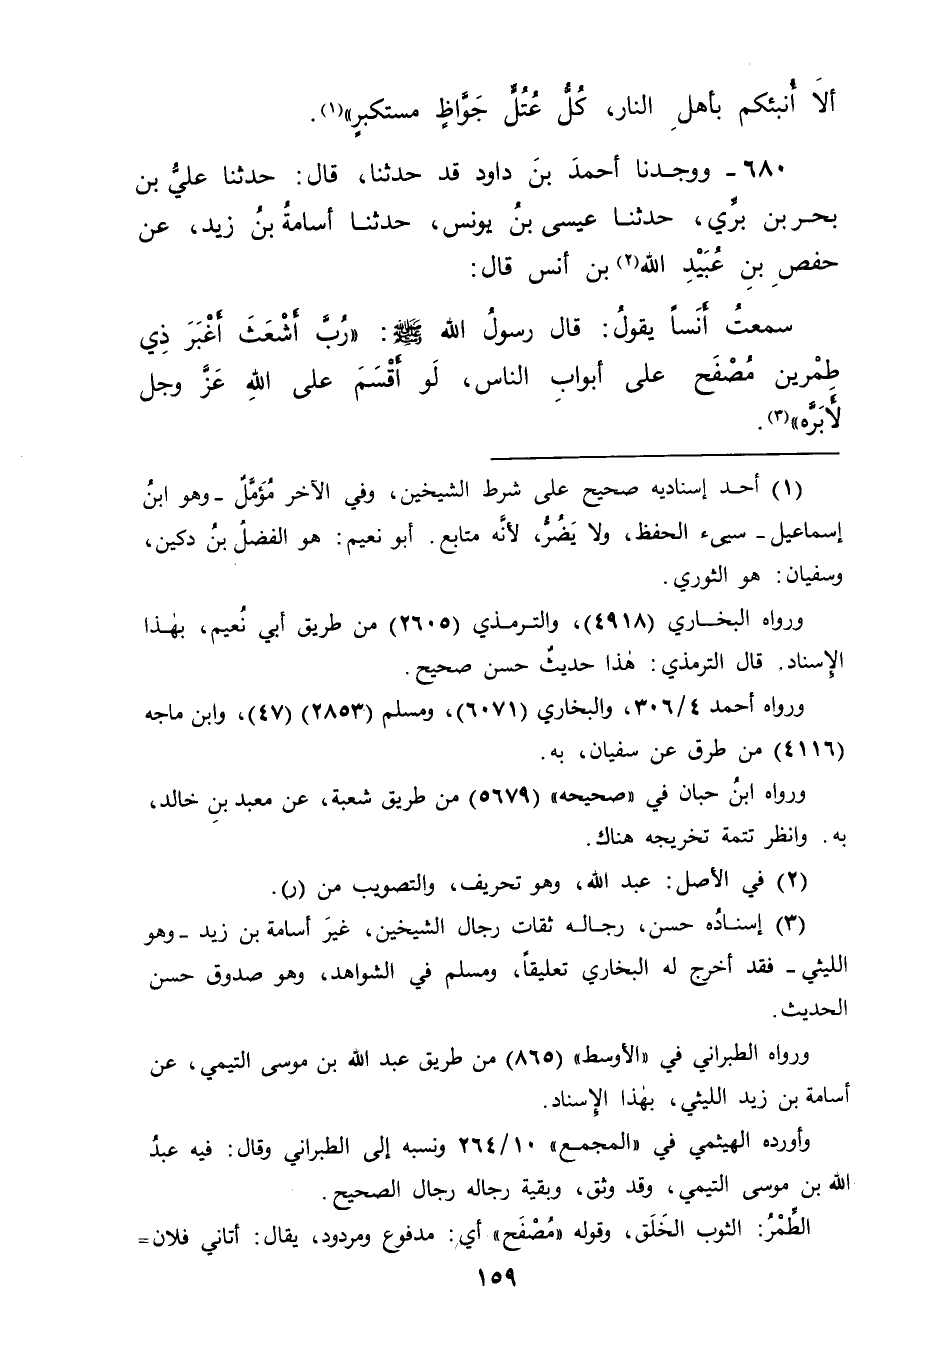 ألاَ أُنبئكم بأهلِ النار، كُلُّ عُتُلٍّ جَوَّاظٍ مستكبرٍ»(١).
٦٨٠ ـ ووجـدنا أحمدَ بنَ داود قد حدثنا، قال: حدثنا عليُّ بن
بحـر بن برِّي، حدثنـا عيسى بنُ يونس، حدثنـا أسامةُ بنُ زيد، عن
حفصِ بنِ عُبَيْدِ الله(٢) بن أنس قال:
سمعتُ أَنَساً يقولُ: قال رسولُ الله ﷺ: «رُبَّ أَشْعَثَ أَغْبَرَ ذِي
طِمْرين مُصْفَح على أبوابِ الناس، لَو أَقْسَمَ على اللهِ عَزَّ وجل
لأَبَرَّه»(٣).
(١) أحـد إسناديه صحيح على شرط الشيخين، وفي الآخر مُؤَمَّلٌ ـ وهو ابنُ
إسماعيل ـ سيىء الحفظ، ولا يَضُرُّ، لأنَّه متابع. أبو نعيم: هو الفضلُ بنُ دكين،
وسفيان: هو الثوري.
ورواه البخـاري (٤٩١٨)، والتـرمـذي (٢٦٠٥) من طريق أبي نُعيم، بهٰـذا
الإِسناد. قال الترمذي: هٰذا حديثٌ حسن صحيح.
ورواه أحمد ٣٠٦/٤، والبخاري (٦٠٧١)، ومسلم (٢٨٥٣) (٤٧)، وابن ماجه
(٤١١٦) من طرق عن سفيان، به.
ورواه ابنُ حبان في «صحيحه» (٥٦٧٩) من طريق شعبة، عن معبد بنِ خالد،
به. وانظر تتمة تخريجه هناك.
(٢) في الأصل: عبد الله، وهو تحريف، والتصويب من (ر).
(٣) إسنـادُه حسن، رجـالـه ثقات رجال الشيخين، غيرَ أسامة بن زيد ـ وهو
الليثي ـ فقد أخرج له البخاري تعليقاً، ومسلم في الشواهد، وهو صدوق حسن
الحديث.
ورواه الطبراني في «الأوسط» (٨٦٥) من طريق عبد الله بن موسى التيمي، عن
أسامة بن زيد الليثي، بهٰذا الإِسناد.
وأورده الهيثمي في «المجمع» ٢٦٤/١٠ ونسبه إلى الطبراني وقال: فيه عبدُ
الله بن موسى التيمي، وقد وثق، وبقية رجاله رجال الصحيح.
الطِّمْرُ: الثوب الخَلَق، وقوله «مُصْفَح» أي: مدفوع ومردود، يقال: أتاني فلان=
١٥٩